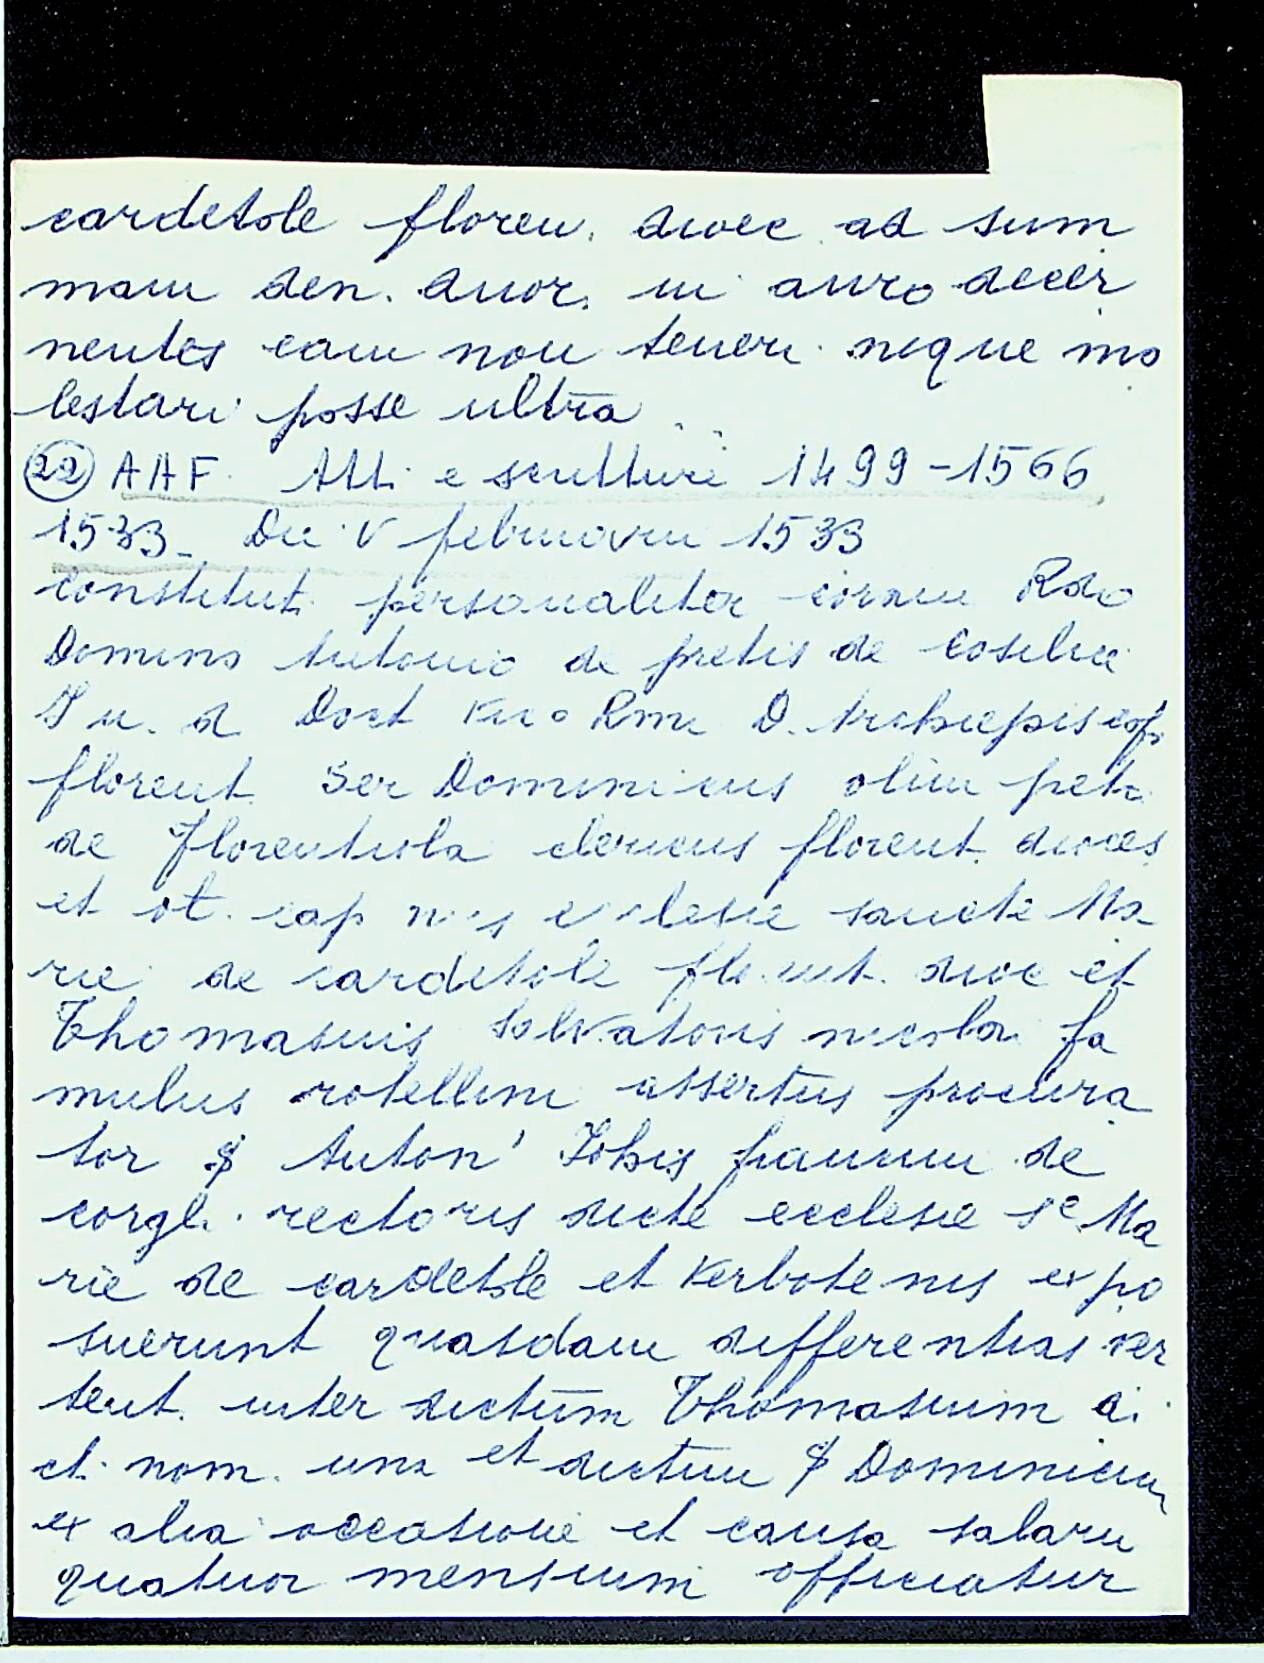 cardetole floren. dioec ad sum
mam den. duor. in auro decer
nentes eam non teneri neque mo
lestari posse ultra
22 AAF. Atti e scritture 1499-1566
1533_ Die V februarii 1533
constitut. personaliter coram Rdo
Domino Antonio de pretis de
J u. d Doct Rmi D. Archiepiscopi
florent. Ser Dominicus olim petri
de Florentiola clericus florent. dioces
et ol. cap ecclesie sancte Ma
rie de cardetole florent. dioc et
Thomasius Salvatoris nicolai fa
mulus rotellini assertus procura
tor $ Anton' Johis de
corgl. rectoris dicte ecclesie Se Ma
rie de cardetole et verbotenis expo
suerunt quasdam differentias ver
tent. inter dictum Thomasium di
ct. nom. una et dictum $ Dominicum
ex alia occasione et causa salarii
quatuor mensium officiatur